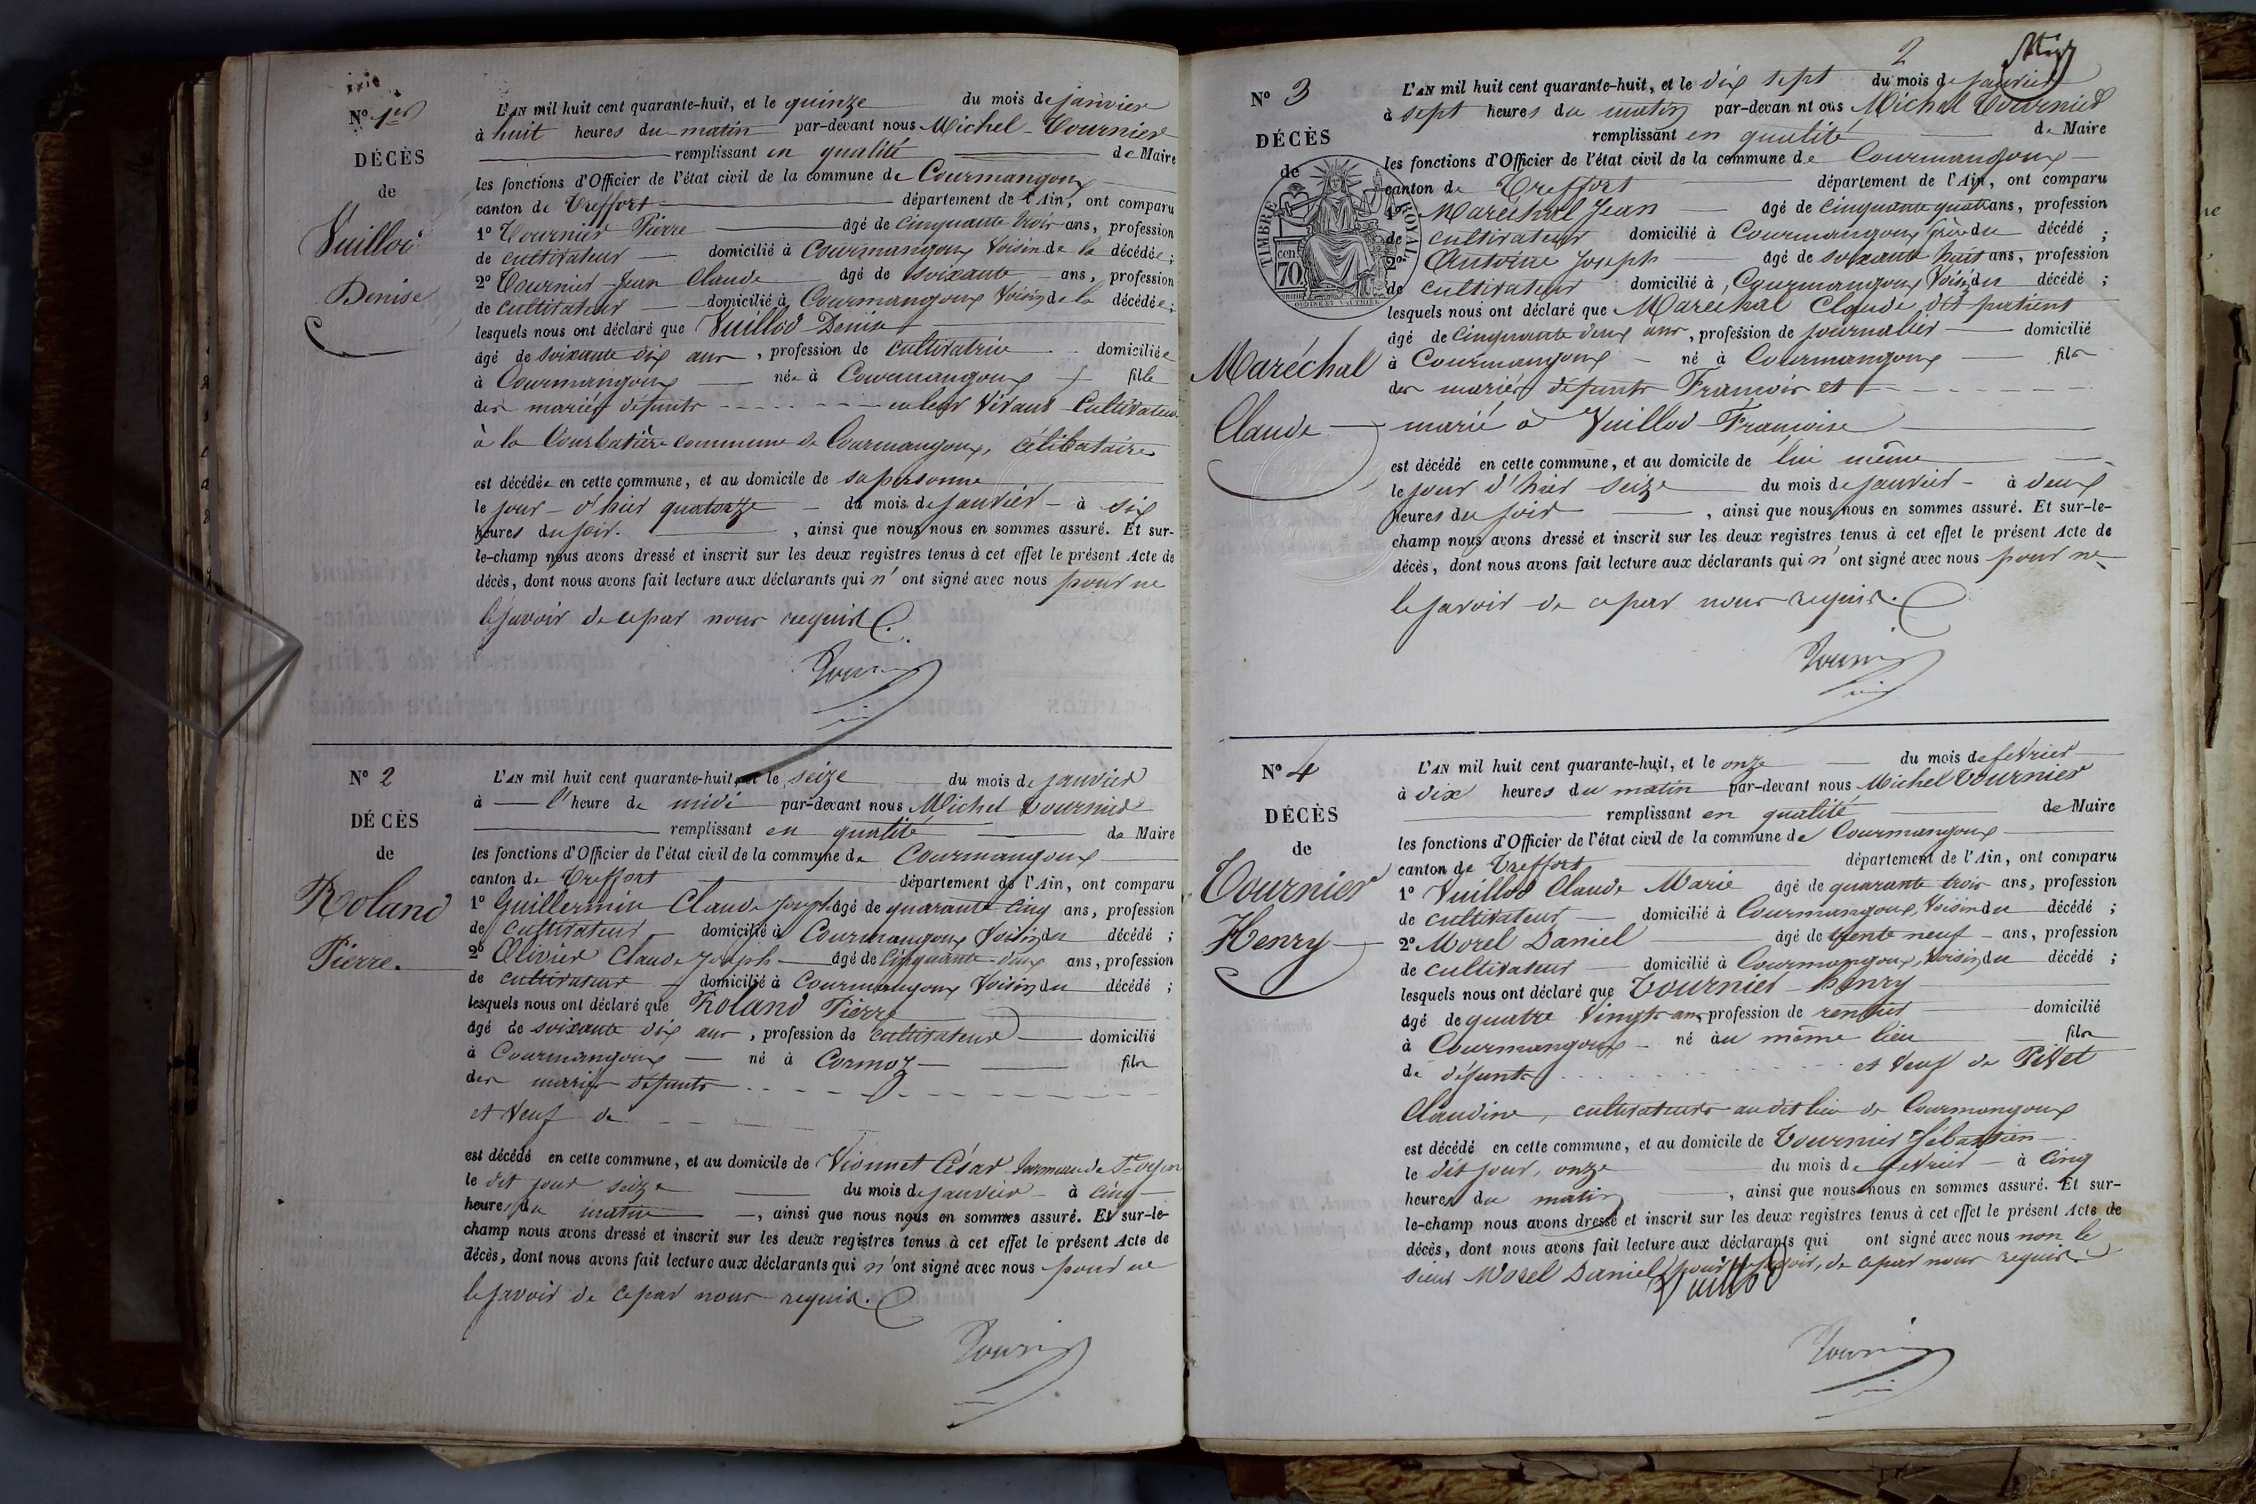 N° 1er
DÉCÈS
de
Vuillod
Denise
L'AN mil huit cent quarante-huit, et le quinze du mois de janvier
à huit heures du matin par-devant nous Michel Tournier
remplissant en qualité de Maire
les fonctions d'Officier de l'état civil de la commune de Courmangoux
canton de Treffort département de l'Ain, ont comparu
1° Tournier Pierre âgé de cinquante trois ans, profession
de cultivateur domicilié à Courmangoux voisin de la décédée ;
2° Tournier Jean Claude âgé de soixante ans, profession
de cultivateur domicilié à Courmangoux voisin de la décédée ;
lesquels nous ont déclaré que Vuillod Denise
âgé de soixante dix ans, profession de cultivatrice domiciliée
à Courmangoux née à Courmangoux fille
des mariés défunts en leur vivant cultivateurs
à la Courbatière commune de Courmangoux, célibataire
est décédée en cette commune, et au domicile de sa personne
le jour d'hier quatorze du mois de janvier à six
heures du soir. , ainsi que nous nous en sommes assuré. Et sur-
le-champ nous avons dressé et inscrit sur les deux registres tenus à cet effet le présent Acte de
décès, dont nous avons fait lecture aux déclarants qui n'ont signé avec nous pour ne
le savoir de ce par nous requis.
Tournier
N° 2
DÉCÈS
de
Roland
Pierre.
L'AN mil huit cent quarante-huit, et le seize du mois de janvier
à l'heure de midi par-devant nous Michel Tournier
remplissant en qualité de Maire
les fonctions d'Officier de l'état civil de la commune de Courmangoux
canton de Treffort département de l'Ain, ont comparu
1° Guillermin Claude Joseph âgé de quarante cinq ans, profession
de cultivateur domicilié à Courmangoux voisin du décédé ;
2° Olivier Claude Joseph âgé de cinquante deux ans, profession
de cultivateur domicilié à Courmangoux voisin du décédé ;
lesquels nous ont déclaré que Roland Pierre
âgé de soixante dix ans, profession de cultivateur domicilié
à Courmangoux né à Cormoz fils
des mariés défunts
et veuf de
est décédé en cette commune, et au domicile de Vionnet César
le dit jour seize du mois de janvier à cinq
heures du matin , ainsi que nous nous en sommes assuré. Et sur-le-
champ nous avons dressé et inscrit sur les deux registres tenus à cet effet le présent Acte de
décès, dont nous avons fait lecture aux déclarants qui n'ont signé avec nous pour ne
le savoir de ce par nous requis.
Tournier
2
N° 3
DÉCÈS
de
TIMBRE ROYAL
70 cent
Maréchal
Claude
L'AN mil huit cent quarante-huit, et le dix sept du mois de janvier
à sept heures du matin par-devan nt ous Michel Tournier
remplissant en qualité de Maire
les fonctions d'Officier de l'état civil de la commune de Courmangoux
canton de Treffort département de l'Ain, ont comparu
1° Maréchal Jean âgé de cinquante quatre ans, profession
de cultivateur domicilié à Courmangoux frère du décédé ;
2° Antoine Joseph âgé de soixante huit ans, profession
de cultivateur domicilié à Courmangoux voisin du décédé ;
lesquels nous ont déclaré que Maréchal Claude dit patient
âgé de cinquante deux ans, profession de journalier domicilié
à Courmangoux né à Courmangoux fils
des mariés défunts François et
marié à Vuillod Françoise
est décédé en cette commune, et au domicile de lui même
le jour d'hier seize du mois de janvier à deux
heures du soir , ainsi que nous nous en sommes assuré. Et sur-le-
champ nous avons dressé et inscrit sur les deux registres tenus à cet effet le présent Acte de
décès, dont nous avons fait lecture aux déclarants qui n'ont signé avec nous pour ne
le savoir de ce par nous requis.
Tournier
N° 4
DÉCÈS
de
Tournier
Henry
L'AN mil huit cent quarante-huit, et le onze du mois de fevrier
à dix heures du matin par-devant nous Michel Tournier
remplissant en qualité de Maire
les fonctions d'Officier de l'état civil de la commune de Courmangoux
canton de Treffort département de l'Ain, ont comparu
1° Vuillod Claude Marie âgé de quarante trois ans, profession
de cultivateur domicilié à Courmangoux, voisin du décédé ;
2° Morel Daniel âgé de trente neuf ans, profession
de cultivateur domicilié à Courmangoux, voisin du décédé ;
lesquels nous ont déclaré que Tournier henry
âgé de quatre vingts ans profession de rentier domicilié
à Courmangoux né au même lieu fils
de défunts et veuf de Pivet
Claudine, cultivateurs au dit lieu de Courmangoux
est décédé en cette commune, et au domicile de Tournier Sébastien
le dit jour, onze du mois de fevrier à cinq
heures du matin , ainsi que nous nous en sommes assuré. Et sur-
le-champ nous avons dressé et inscrit sur les deux registres tenus à cet effet le présent Acte de
décès, dont nous avons fait lecture aux déclarants qui ont signé avec nous non le
sieur Morel Daniel pour ne savoir, de ce par nous requis.
Vuillod
Tournier